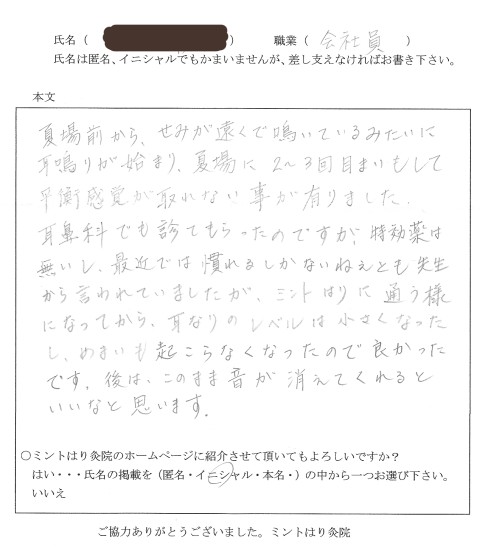 氏名（　　　　　）　職業（ 会社員 ）
氏名は匿名、イニシャルでもかまいませんが、差し支えなければお書き下さい。
本文
夏場前から、せみが遠くで鳴いているみたいに
耳鳴りが始まり、夏場に2〜3回目まいもして
平衡感覚が取れない事が有りました。
耳鼻科でも診てもらったのですが、特効薬は
無いし、最近では慣れるしかないねえとも先生
から言われていましたが、ミントはりに通う様
になってから、耳なりのレベルは小さくなった
し、めまいも起こらなくなったので良かった
です。後は、このまま音が消えてくれると
いいなと思います。
○ミントはり灸院のホームページに紹介させて頂いてもよろしいですか？
はい・・・氏名の掲載を（匿名・イニシャル・本名・）の中から一つお選び下さい。
いいえ
ご協力ありがとうございました。ミントはり灸院